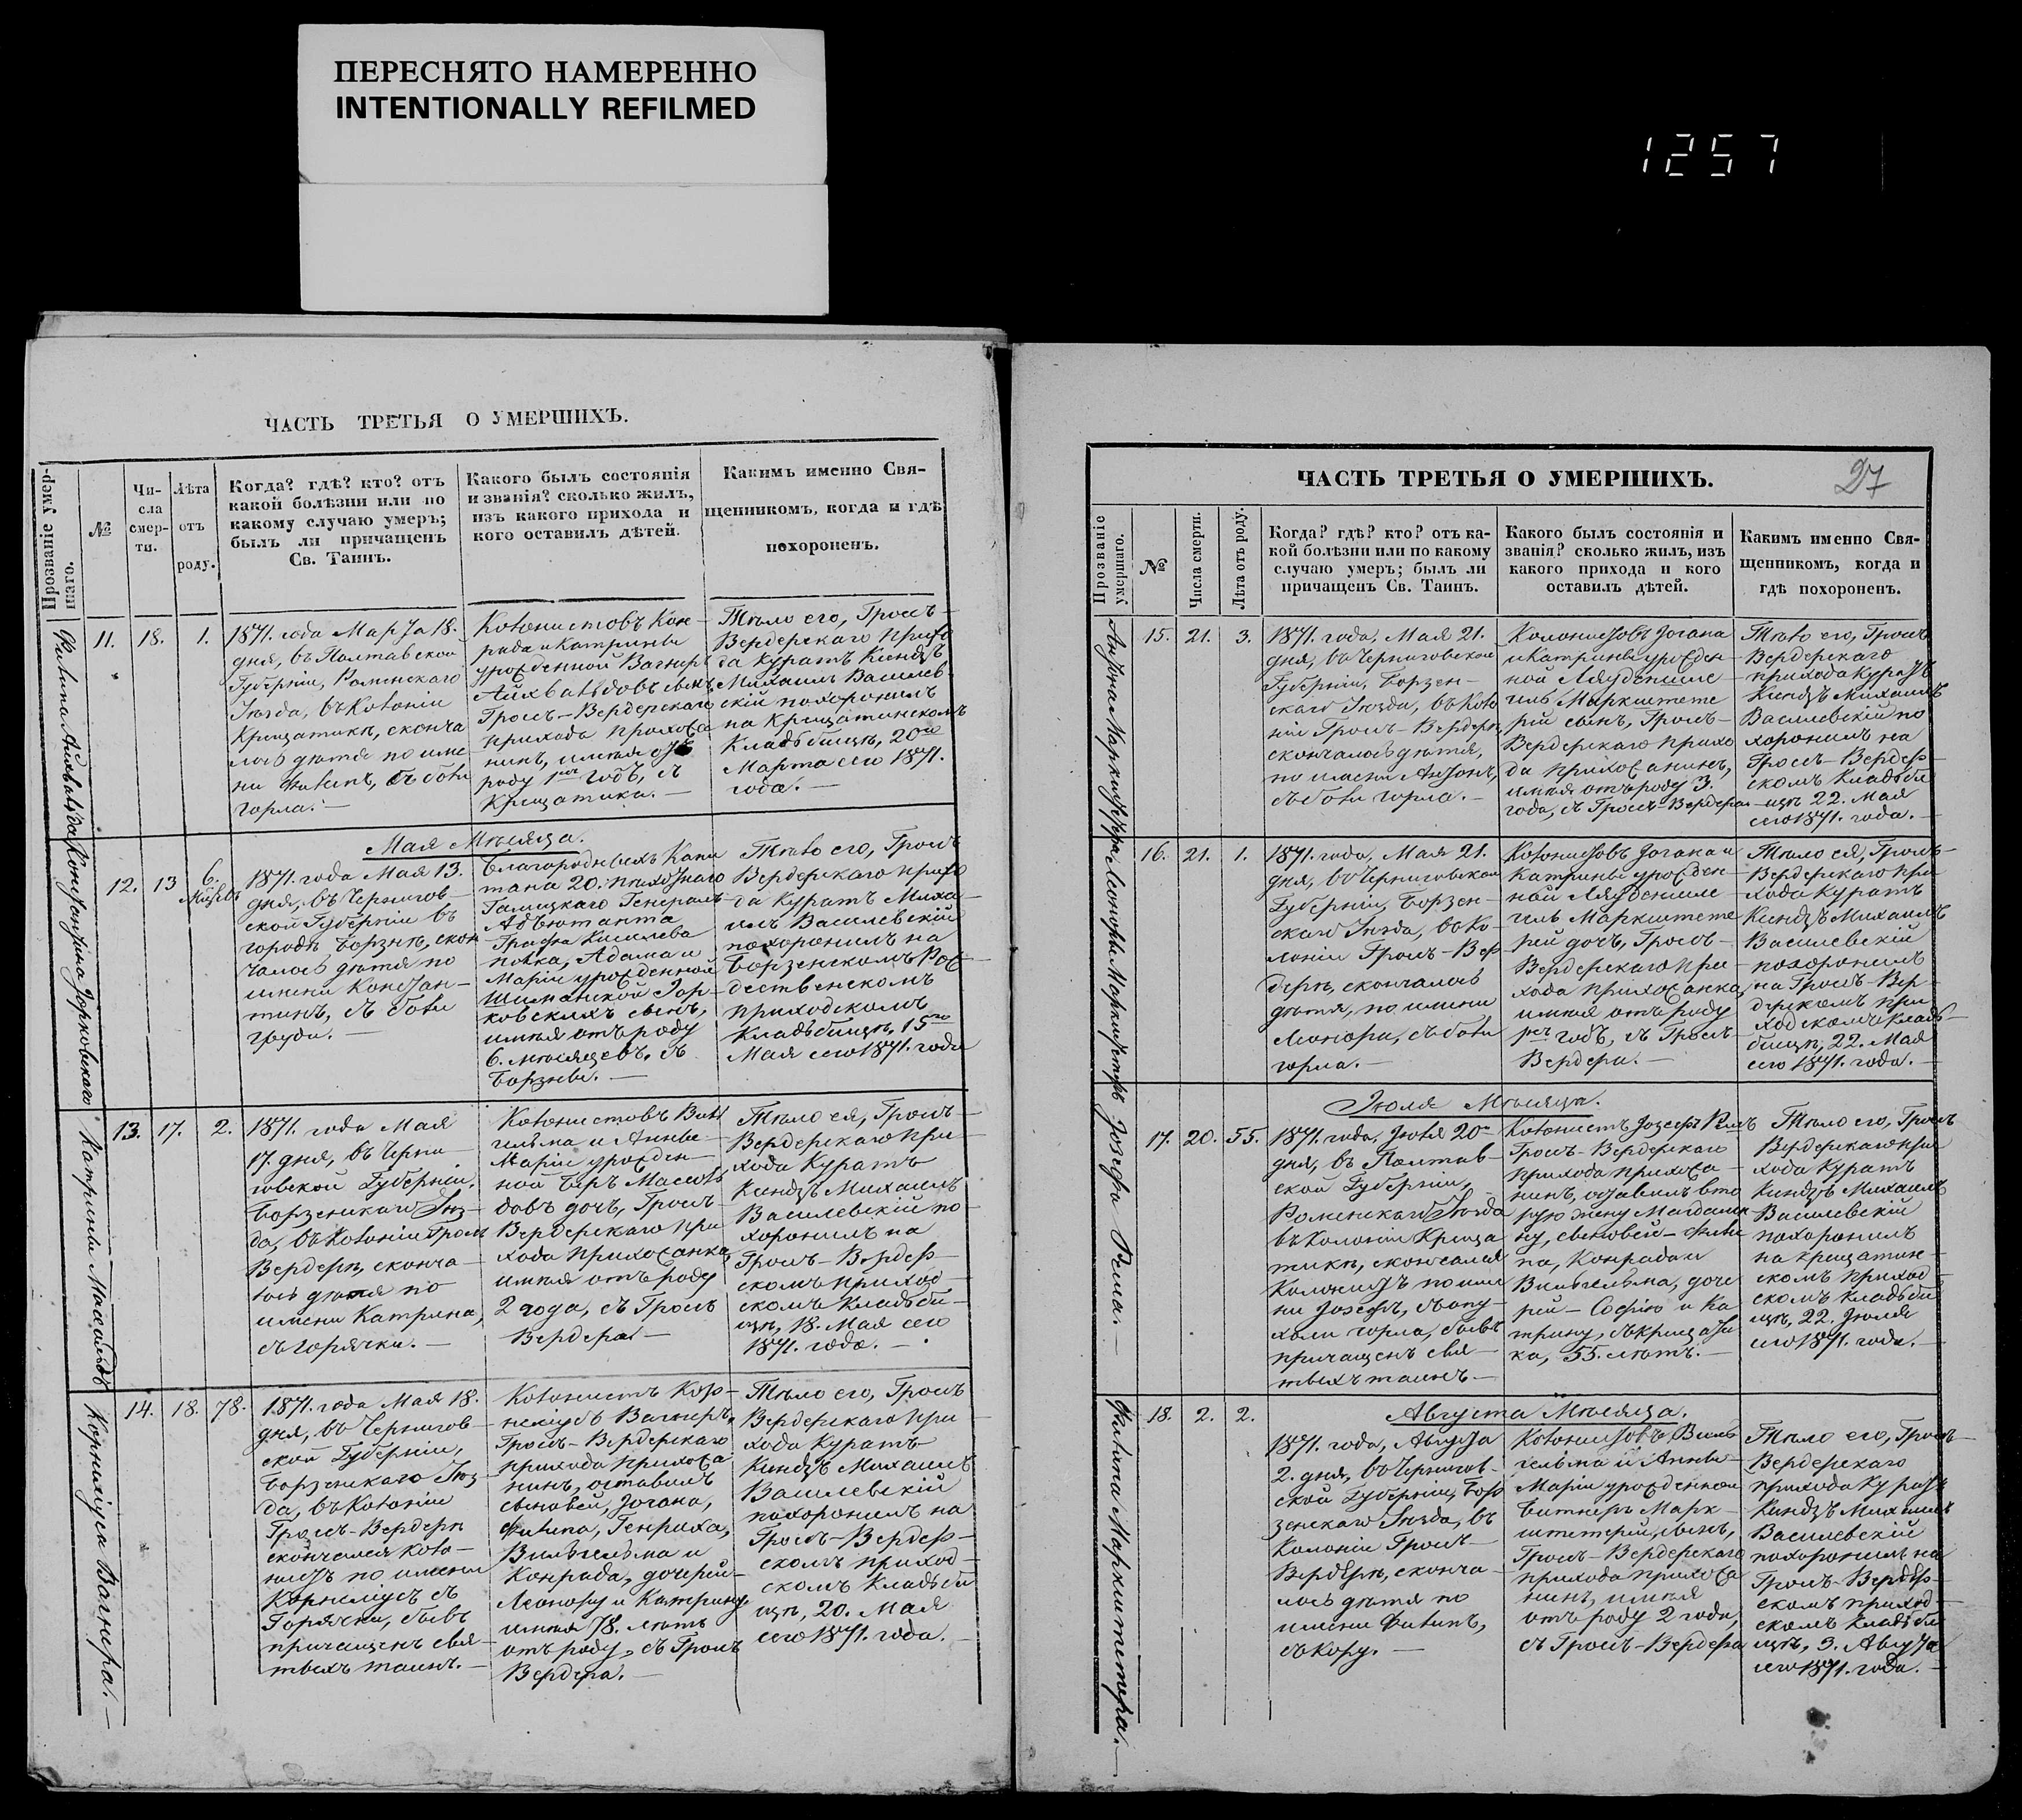 ПЕРЕСНЯТО НАМЕРЕННО
INTENTIONALLY REFILMED
1257
ЧАСТЬ ТРЕТЬЯ О УМЕРШИХЪ.
Прозваніе умер-
шаго.
№
Чи-
сла
смер-
ти.
Лѣта
отъ
роду.
Когда? гдѣ? кто? отъ
какой болѣзни или по
какому случаю умеръ;
былъ ли причащенъ
Св. Таинъ.
Какого былъ состоянія
и званія? сколько жилъ,
изъ какого прихода и
кого оставилъ дѣтей.
Какимъ именно Свя-
щенникомъ, когда и гдѣ
похороненъ.
Филипа Айхвальда
11.
18.
1.
1871. года Марта 18.
дня, въ Полтавской
Губерніи, Роменскаго
Уѣзда, въ Колоніи
Крещатикъ, сконча
лось дитя по име
ни Филипъ, съ боли
горла. —
Колонистовъ Кон-
рада и Катрины
урожденной Вагнеръ
Айхвальдовъ сынъ,
Гросъ-Вердерскаго
прихода прихожа
нинъ, имѣя отъ
роду 1нъ годъ, съ
Крещатика. —
Тѣло его, Гросъ-
Вердерскаго прихо
да Куратъ Ксіндзъ
Михаилъ Василев
скій похоронилъ
на Крещатинскомъ
Кладбищѣ, 20го
Марта сего 1871.
года. —
Мая Мѣсяца.
Константина Горковскаго
12.
13
6.
Мѣсяцъ
1871. года Мая 13.
дня, въ Чернигов-
ской Губерніи въ
городѣ Борзнѣ, скон
чалось дитя по
имени Констан-
тинъ, съ боли
груди. —
Благородныхъ Капи
тана 20. пѣхотнаго
Галицкаго Генералъ-
Адъютанта
Графа Киселева
полка, Адама и
Маріи урожденной
Шиманской Гор-
ковскихъ сынъ,
имѣя отъ роду
6. мѣсяцевъ, съ
Борзны. —
Тѣло его, Гросъ
Вердерскаго прихо
да Куратъ Миха-
илъ Василевскій
похоронилъ на
Борзенскомъ Рож-
дественскомъ
приходскомъ
Кладбищѣ, 15го
Мая сего 1871. года
Катрины Масхольдъ
13.
17.
2.
1871. года Мая
17. дня, въ Черни-
говской Губерніи,
Борзенскаго Уѣз-
да, въ Колоніи Гросъ
Вердеръ, сконча-
лось дитя по
имени Катрина,
съ горячки. —
Колонистовъ Виль
гельма и Анны-
Маріи урожден-
ной Беръ Масголь
довъ дочь, Гросъ-
Вердерскаго при
хода прихожанка
имѣя отъ роду
2 года, съ Гросъ
Вердера —
Тѣло ея, Гросъ-
Вердерскаго при-
хода Куратъ
Ксіндзъ Михаилъ
Василевскій по-
хоронилъ на
Гросъ-Вердер-
скомъ приход-
скомъ Кладби-
щѣ, 18. Мая сего
1871. года. —
Корниліуса Вагнера. —
14.
18.
78.
1871. года Мая 18.
дня, въ Чернигов-
ской Губерніи,
Борзенскаго Уѣз
да, въ Колоніи
Гросъ-Вердерѣ
скончался коло-
нистъ по имени
Корнеліусъ съ
Горячки, бывъ
причащенъ свя-
тыхъ таинъ. —
Колонистъ Кор-
неліусъ Вагнеръ,
Гросъ-Вердерскаго
прихода прихожа
нинъ, оставилъ
сыновей, Іогана,
Филипа, Генриха,
Вильгельма и
Конрада, дочерей-
Леонору и Катрину,
имѣя 78. лѣтъ
отъ роду, съ Гросъ
Вердера. —
Тѣло его, Гросъ
Вердерскаго при
хода Куратъ
Ксіндзъ Михаилъ
Василевскій
похоронилъ на
Гросъ-Вердер-
скомъ приход-
скомъ Кладби
щѣ, 20. Мая
сего 1871. года.
ЧАСТЬ ТРЕТЬЯ О УМЕРШИХЪ.
27
Прозваніе
умершаго.
№
Числа смерти.
Лѣта отъ роду.
Когда? гдѣ? кто? отъ ка-
кой болѣзни или по какому
случаю умеръ; былъ ли
причащенъ Св. Таинъ.
Какого былъ состоянія и
званія? сколько жилъ, изъ
какого прихода и кого
оставилъ дѣтей.
Какимъ именно Свя-
щенникомъ, когда и
гдѣ похороненъ.
Антона Маркштетера
15.
21.
3.
1871. года, Мая 21.
дня, въ Черниговской
Губерніи, Борзен-
скаго Уѣзда, въ Коло
ніи Гросъ-Вердерѣ
скончалось дитя,
по имени Антонъ,
съ боли горла. —
Колонистовъ Іогана
и Катрины урожден-
ной Ляуденшле
гель Маркштете
рій сынъ, Гросъ-
Вердерскаго прихо
да прихожанинъ,
имѣя отъ роду 3.
года, съ Гросъ-Вердера
Тѣло его, Гросъ
Вердерскаго
прихода Куратъ
Ксіндзъ Михаилъ
Василевскій по
хоронилъ на
Гросъ-Вердер-
скомъ Кладби
щѣ 22. Мая
сего 1871. года. —
Леоноры Маркштетеръ
16.
21.
1.
1871. года, Мая 21.
дня, въ Черниговской
Губерніи, Борзен-
скаго Уѣзда, въ Ко-
лоніи Гросъ-Вер
дерѣ, скончалось
дитя, по имени
Леонора, съ боли
горла. —
Колонистовъ Іогана и
Катрины урожден-
ной Ляуденшле
гель Маркштете
рей дочь, Гросъ-
Вердерскаго при-
хода прихожанка,
имѣя отъ роду
1нъ годъ, съ Гросъ
Вердера. —
Тѣло ея, Гросъ-
Вердерскаго при
хода Куратъ
Ксіндзъ Михаилъ
Василевскій
похоронилъ
на Гросъ-Вер-
дерскомъ при
ходскомъ Клад-
бищѣ, 22. Мая
сего 1871. года. —
Іюля Мѣсяца.
Іозефа
17.
20.
55.
1871. года, Іюля 20го
дня, въ Полтав-
ской Губерніи,
Роменскаго Уѣзда
въ Колоніи Креща
тикѣ, скончался
Колонистъ по име
ни Іозефъ, съ опу-
холи горла, бывъ
причащенъ свя-
тыхъ таинъ. —
Колонистъ Іозефъ
Гросъ-Вердерскаго
прихода прихожа-
нинъ, оставилъ вто
рую жену Магдале
ну, сыновей - Фили
па, Конрада и
Вильгельма, доче
рей - Софію и Ка
трину, съ Крещати
ка, 55. лѣтъ. —
Тѣло его, Гросъ
Вердерскаго при
хода Куратъ
Ксіндзъ Михаилъ
Василевскій
похоронилъ
на Крещатин-
скомъ приход
скомъ Кладби
щѣ, 22. Іюля
сего 1871. года. —
Августа Мѣсяца.
Филипа Маркштетера. —
18.
2.
2.
1871. года, Августа
2. дня, въ Чернигов-
ской Губерніи, Бор
зенскаго Уѣзда, въ
Колоніи Гросъ-
Вердерѣ, сконча-
лось дитя по
имени Филипъ,
съ кору. —
Колонистовъ Виль
гельма и Анны-
Маріи урожденной
Битнеръ Марк-
штетерій, сынъ,
Гросъ-Вердерскаго
прихода прихожа
нинъ, имѣя
отъ роду 2 года,
съ Гросъ-Вердера
Тѣло его, Гросъ-
Вердерскаго
прихода Куратъ
Ксіндзъ Михаилъ
Василевскій
похоронилъ на
Гросъ-Вердер-
скомъ приход-
скомъ Кладби
щѣ, 3. Августа
сего 1871. года. —